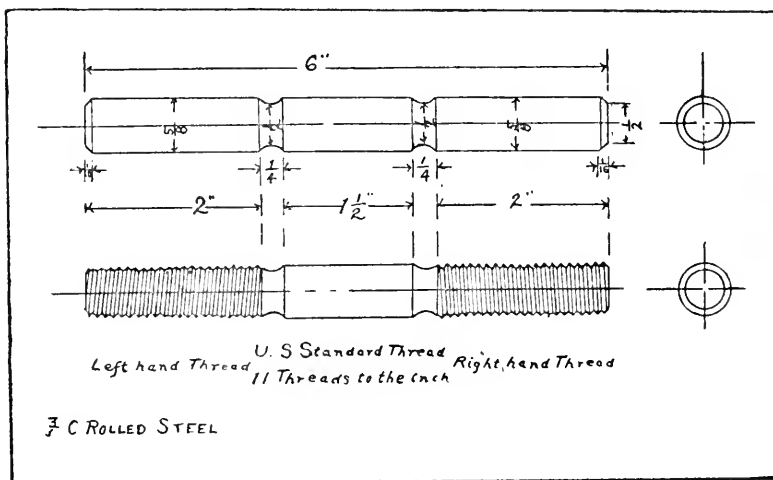 6"
5/8
5/8
1/2
1/4
1/4
1/16
2"
1 1/2"
2"
Left hand Thread
U. S Standard Thread
11 Threads to the inch
Right hand Thread
C ROLLED STEEL